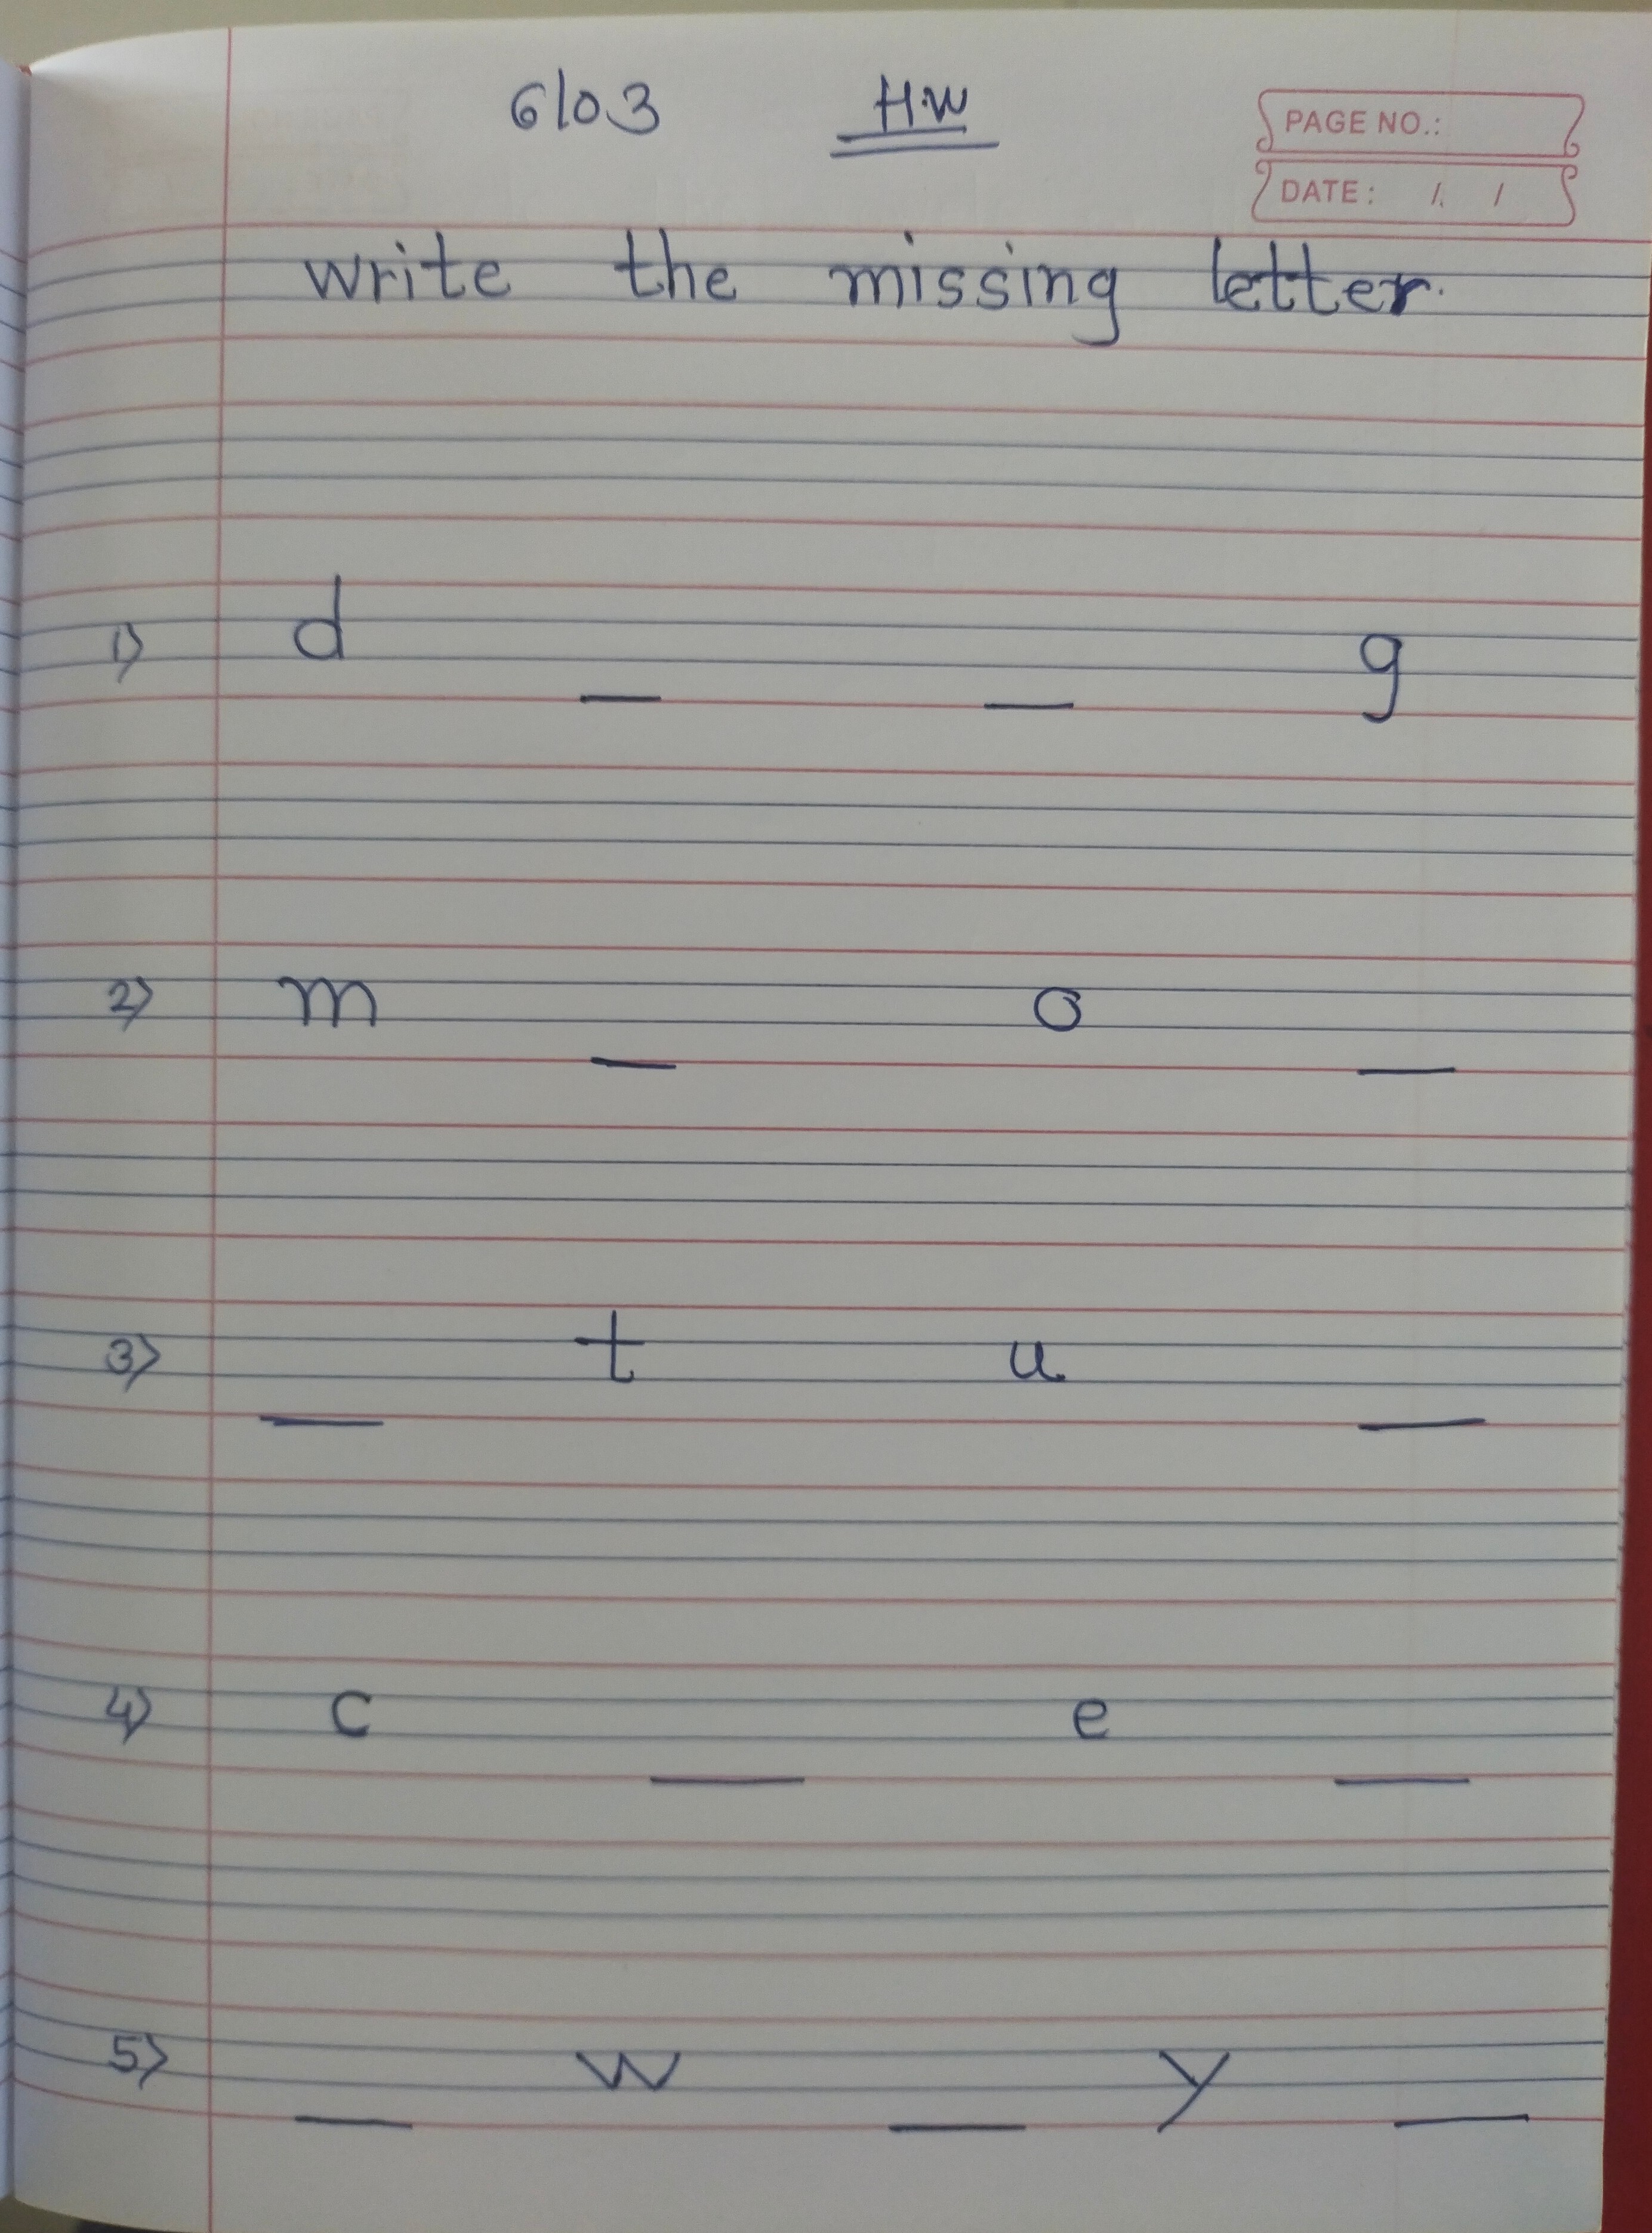 6/03 H.W
PAGE NO.:
DATE: / /
write the missing letter.
1) d _ _ g
2) m _ o _
3) _ t u _
4) c _ e _
5) _ w _ y _